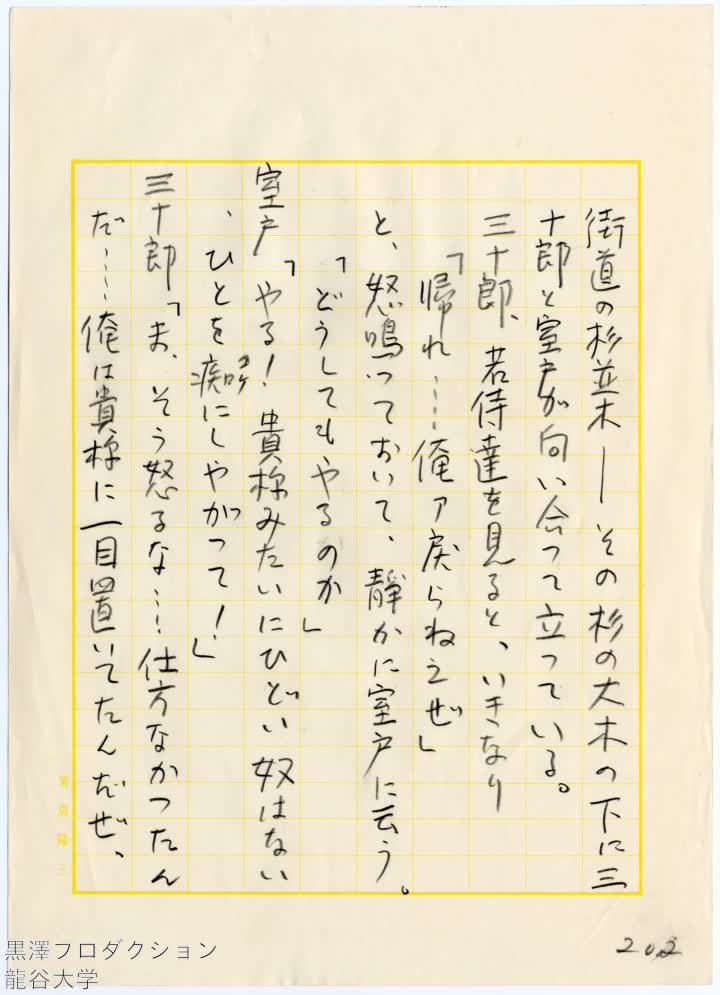 街道の杉並木――その杉の大木の下に三
十郎と室戸が向い合って立っている。
三十郎、若侍達を見ると、いきなり
「帰れ……俺ァ戻らねえぜ」
と、怒鳴っておいて、静かに室戸に云う。
「どうしてもやるのか」
室戸「やる！貴様みたいにひどい奴はない
、ひとを痴にしやがって！」
三十郎「ま、そう怒るな…仕方なかつたん
だ……俺は貴様に一目置いてたんだぜ、
203
黒澤プロダクション
龍谷大学